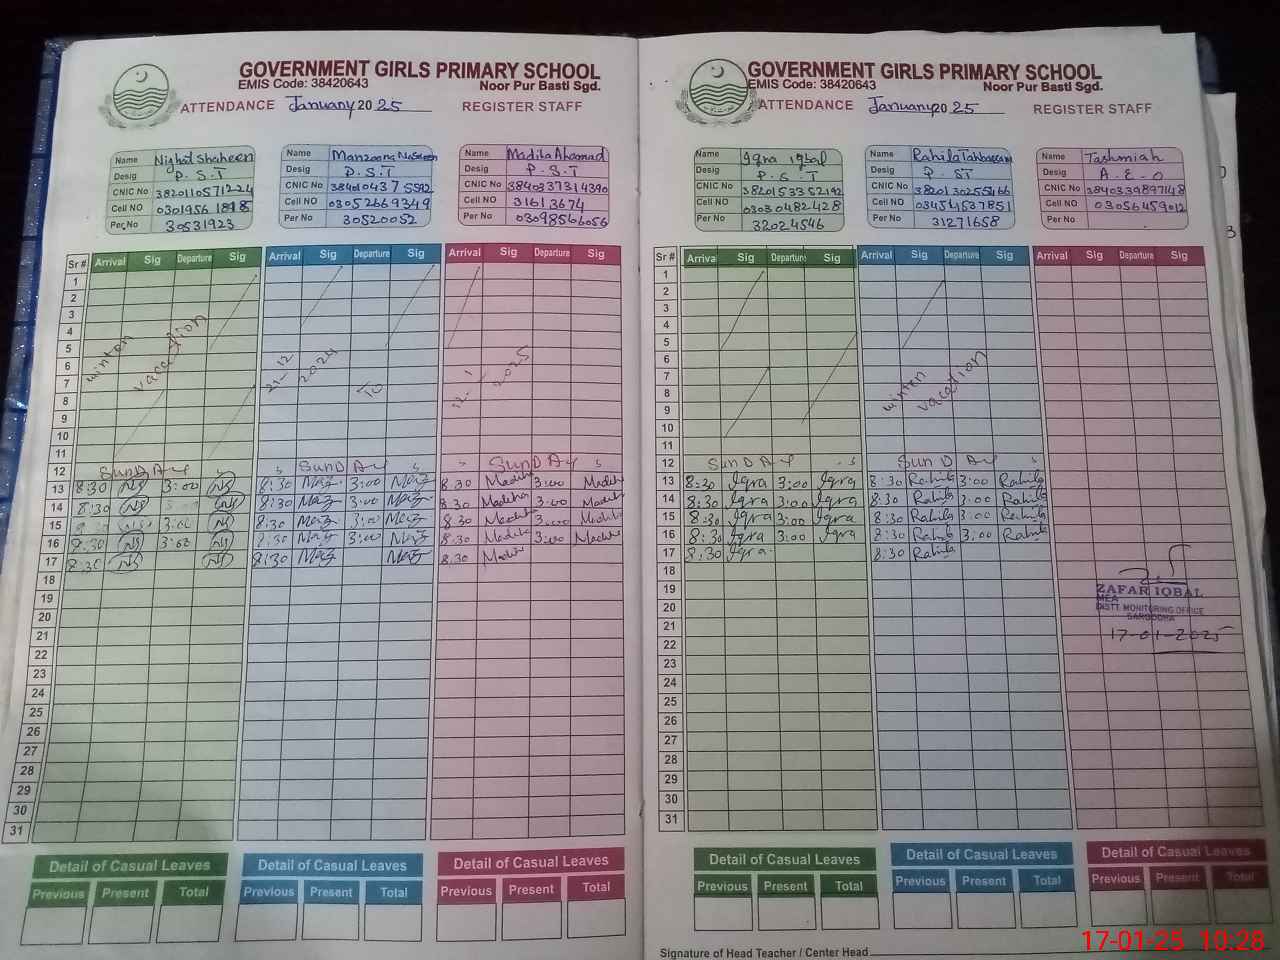 GOVERNMENT GIRLS PRIMARY SCHOOL
EMIS Code: 38420643 Noor Pur Basti Sgd.
ATTENDANCE January 2025 REGISTER STAFF
Name Nighat Shaheen
Desig P.S.T
CNIC No 3820110571224
Cell NO 03019561818
Per No 30531923
Name Manzoona Nasreen
Desig P.S.T
CNIC No 3840104375592
Cell NO 03052669349
Per No 30520052
Name Madiha Ahamad
Desig P.S.T
CNIC No 3840337314390
Cell NO 31613674
Per No 03098566056
Sr # Arrival Sig Departure Sig Arrival Sig Departure Sig Arrival Sig Departure Sig
1
2
3
4
5
6
7
8
9
10
11
winter vacation 21-12 2024 To 12-1 2025
12 SunDAy SunDAy SunDAy
13 8:30 NS 3:00 NS 8:30 Maz 3:00 Maz 8.30 Madiha 3:00 Madiha
14 8:30 NS NS 8:30 Maz 3:00 Maz 8.30 Madiha 3:00 Madiha
15 NS 3:00 NS 8:30 Maz 3:00 Maz 8.30 Madiha 3:00 Madiha
16 8:30 NS 3:00 NS 8:30 Maz 3:00 Maz 8.30 Madiha 3:00 Madiha
17 8:30 NS NS 8:30 Maz Maz 8.30 Madiha
18
19
20
21
22
23
24
25
26
27
28
29
30
31
Detail of Casual Leaves Detail of Casual Leaves Detail of Casual Leaves
Previous Present Total Previous Present Total Previous Present Total
GOVERNMENT GIRLS PRIMARY SCHOOL
EMIS Code: 38420643 Noor Pur Basti Sgd.
ATTENDANCE January 2025 REGISTER STAFF
Name Iqra iqbal
Desig P.S.T
CNIC No 3820153352192
Cell NO 03030482428
Per No 32024546
Name Rahila Tabbasam
Desig P.ST
CNIC No 3820130255466
Cell NO 03454537851
Per No 31271658
Name Tashmiah
Desig A.E.O
CNIC No 3840339897148
Cell NO 03056459012
Per No
Sr # Arrival Sig Departure Sig Arrival Sig Departure Sig Arrival Sig Departure Sig
1
2
3
4
5
6
7
8
9
10
11
winter vacation
12 SunDAy SunDAy
13 8:30 Iqra 3:00 Iqra 8:30 Rahila 3:00 Rahila
14 8:30 Iqra 3:00 Iqra 8:30 Rahila 3:00 Rahila
15 8:30 Iqra 3:00 Iqra 8:30 Rahila 3:00 Rahila
16 8:30 Iqra 3:00 Iqra 8:30 Rahila 3:00 Rahila
17 8.30 Iqra 8:30 Rahila
18
19
20
21
22
23
24
25
26
27
28
29
30
31
ZAFAR IQBAL
MEA
DISTT. MONITORING OFFICE
SARGODHA
17-01-2025
Detail of Casual Leaves Detail of Casual Leaves Detail of Casual Leaves
Previous Present Total Previous Present Total Previous Present Total
Signature of Head Teacher / Center Head
17-01-25 10:28